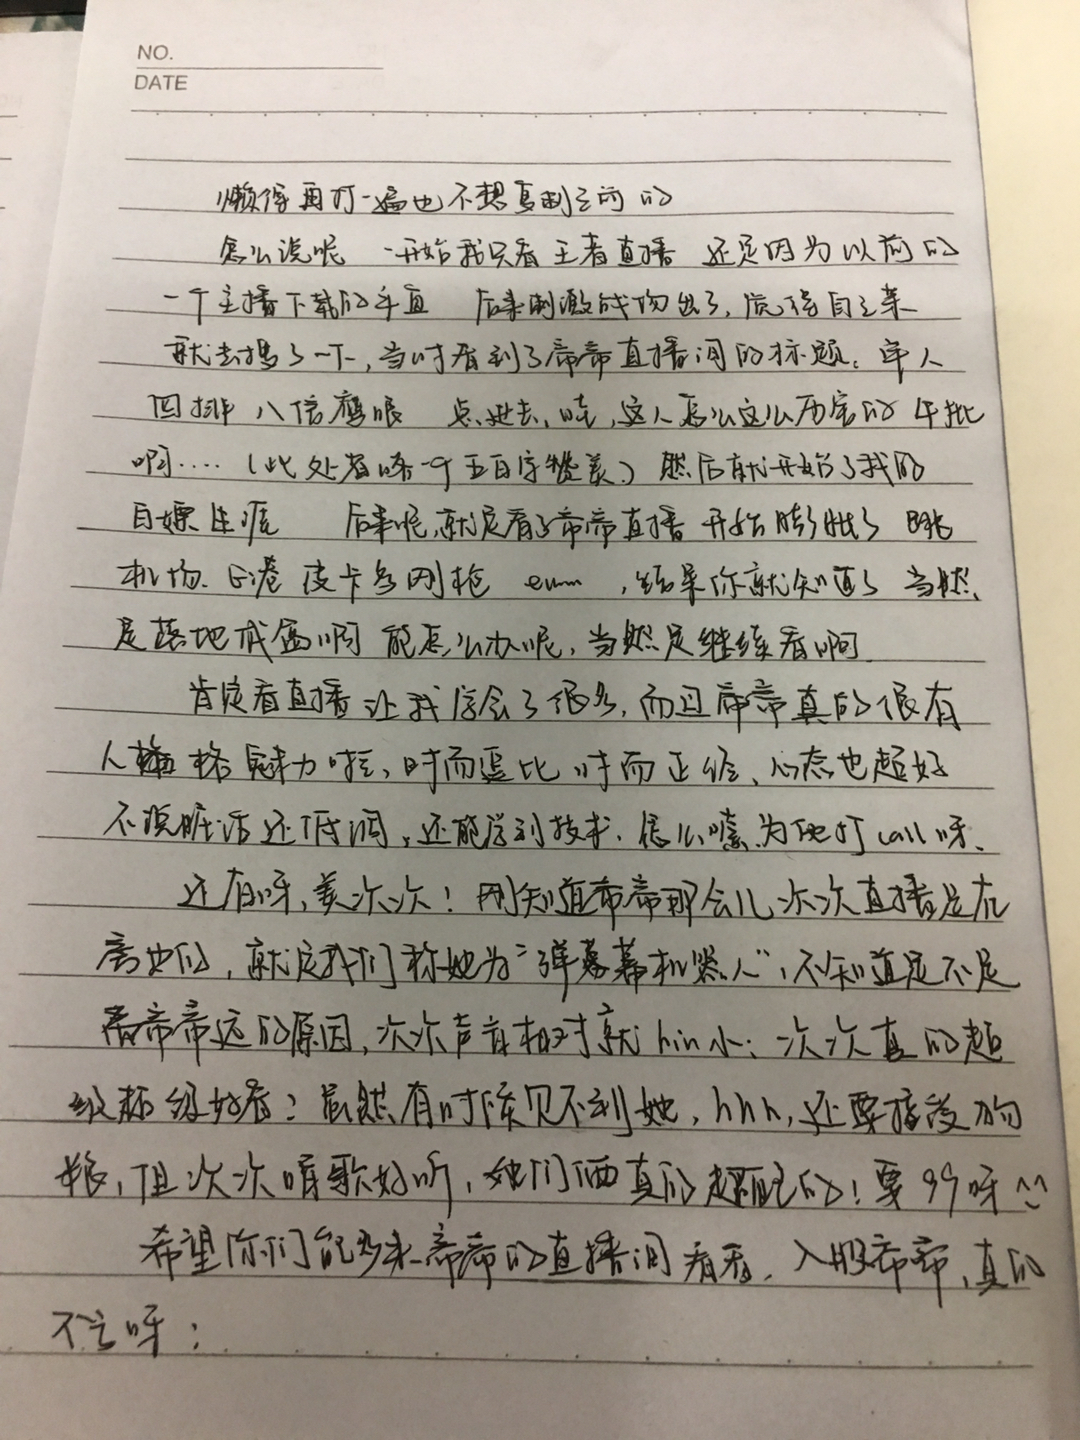 NO.
DATE
懒得再打一遍也不想复制之前的
怎么说呢 一开始我只看王者直播 还是因为以前的
一个主播下载的手直 后来刺激战场出了,觉得自己菜
就去搜了一下,当时看到了帝帝直播间的标题:单人
四排 八倍鹰眼 点进去,哇,这人怎么这么厉害的 牛批
啊....(此处省略一个五百字赞美)然后就开始了我的
白嫖生涯 后来呢,就是看了帝帝直播 开始膨胀了 跳
机场、G港 皮卡多 刚枪 emm,结果你就知道了 当然
是落地成盒啊 能怎么办呢,当然是继续看啊
肯定看直播让我学会了很多,而且帝帝真的很有
人格魅力啦,时而逗比 时而正经、心态也超好
不说脏话还低调,还能学到技术,怎么嗦为他打call呀、
还有呀,姜次次!刚知道帝帝那会儿次次直播是在
旁边的,就是我们称她为“弹幕机器人”,不知道是不是
离帝帝远的原因,次次声音相对就hin小;次次真的超
级超级好看;虽然有时候见不到她,hhh,还要接受狗
粮,但次次唱歌好听,她们俩真的超配的!要99呀^^
希望你们能多来帝帝的直播间看看,入股帝帝,真的
不亏呀;